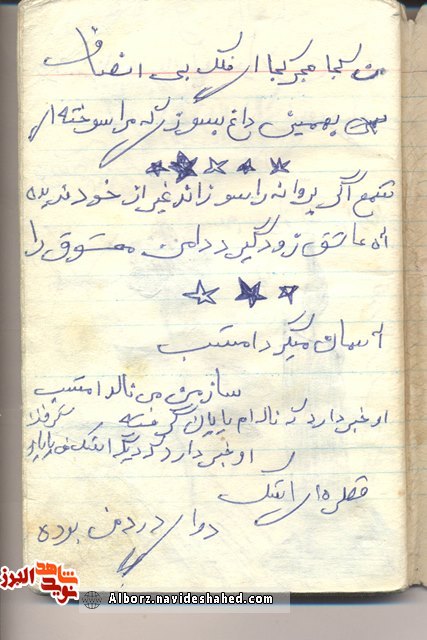 من کجا هجر کجا ای فلک بی انصاف
به همین داغ بسوزی که مرا سوخته ای
شمع اگر پروانه را سوزاند غیر از خود ندیده
آه عاشق زود گیرد دامن معشوق را
آسمان میگرد امشب
ساز من می نالد امشب
او خبر دارد که ناله ام پایان گرفته
او خبر دارد که دیگر اشک من پایان
قطره ای اشک
دوای درد من بوده
شاهد
نوید
البرز
Alborz.navideshahed.com